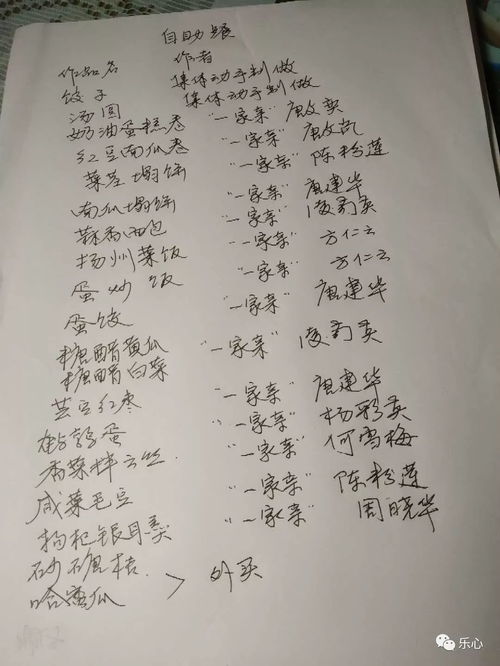 自助餐
作品名 作者
饺子 集体动手制做
汤圆 集体动手制做
奶油蛋糕卷 "一家亲" 唐政奕
红豆南瓜卷 "一家亲" 唐政凯
菜茎塌饼 "一家亲" 陈粉莲
南瓜塌饼 "一家亲" 唐建华
蒜香面包 "一家亲" 凌莉英
扬州菜饭 "一家亲" 方仁云
蛋炒饭 "一家亲" 方仁云
蛋饺 "一家亲" 唐建华
糖醋黄瓜 "一家亲" 凌莉英
糖醋白菜
芸豆红枣 "一家亲" 唐建华
鹌鹑蛋 "一家亲" 杨彩英
香菜拌云丝 "一家亲" 何雪梅
咸菜毛豆 "一家亲" 陈粉莲
枸杞银耳羹 "一家亲" 周晓华
砂糖桔 > 外买
哈密瓜
乐心